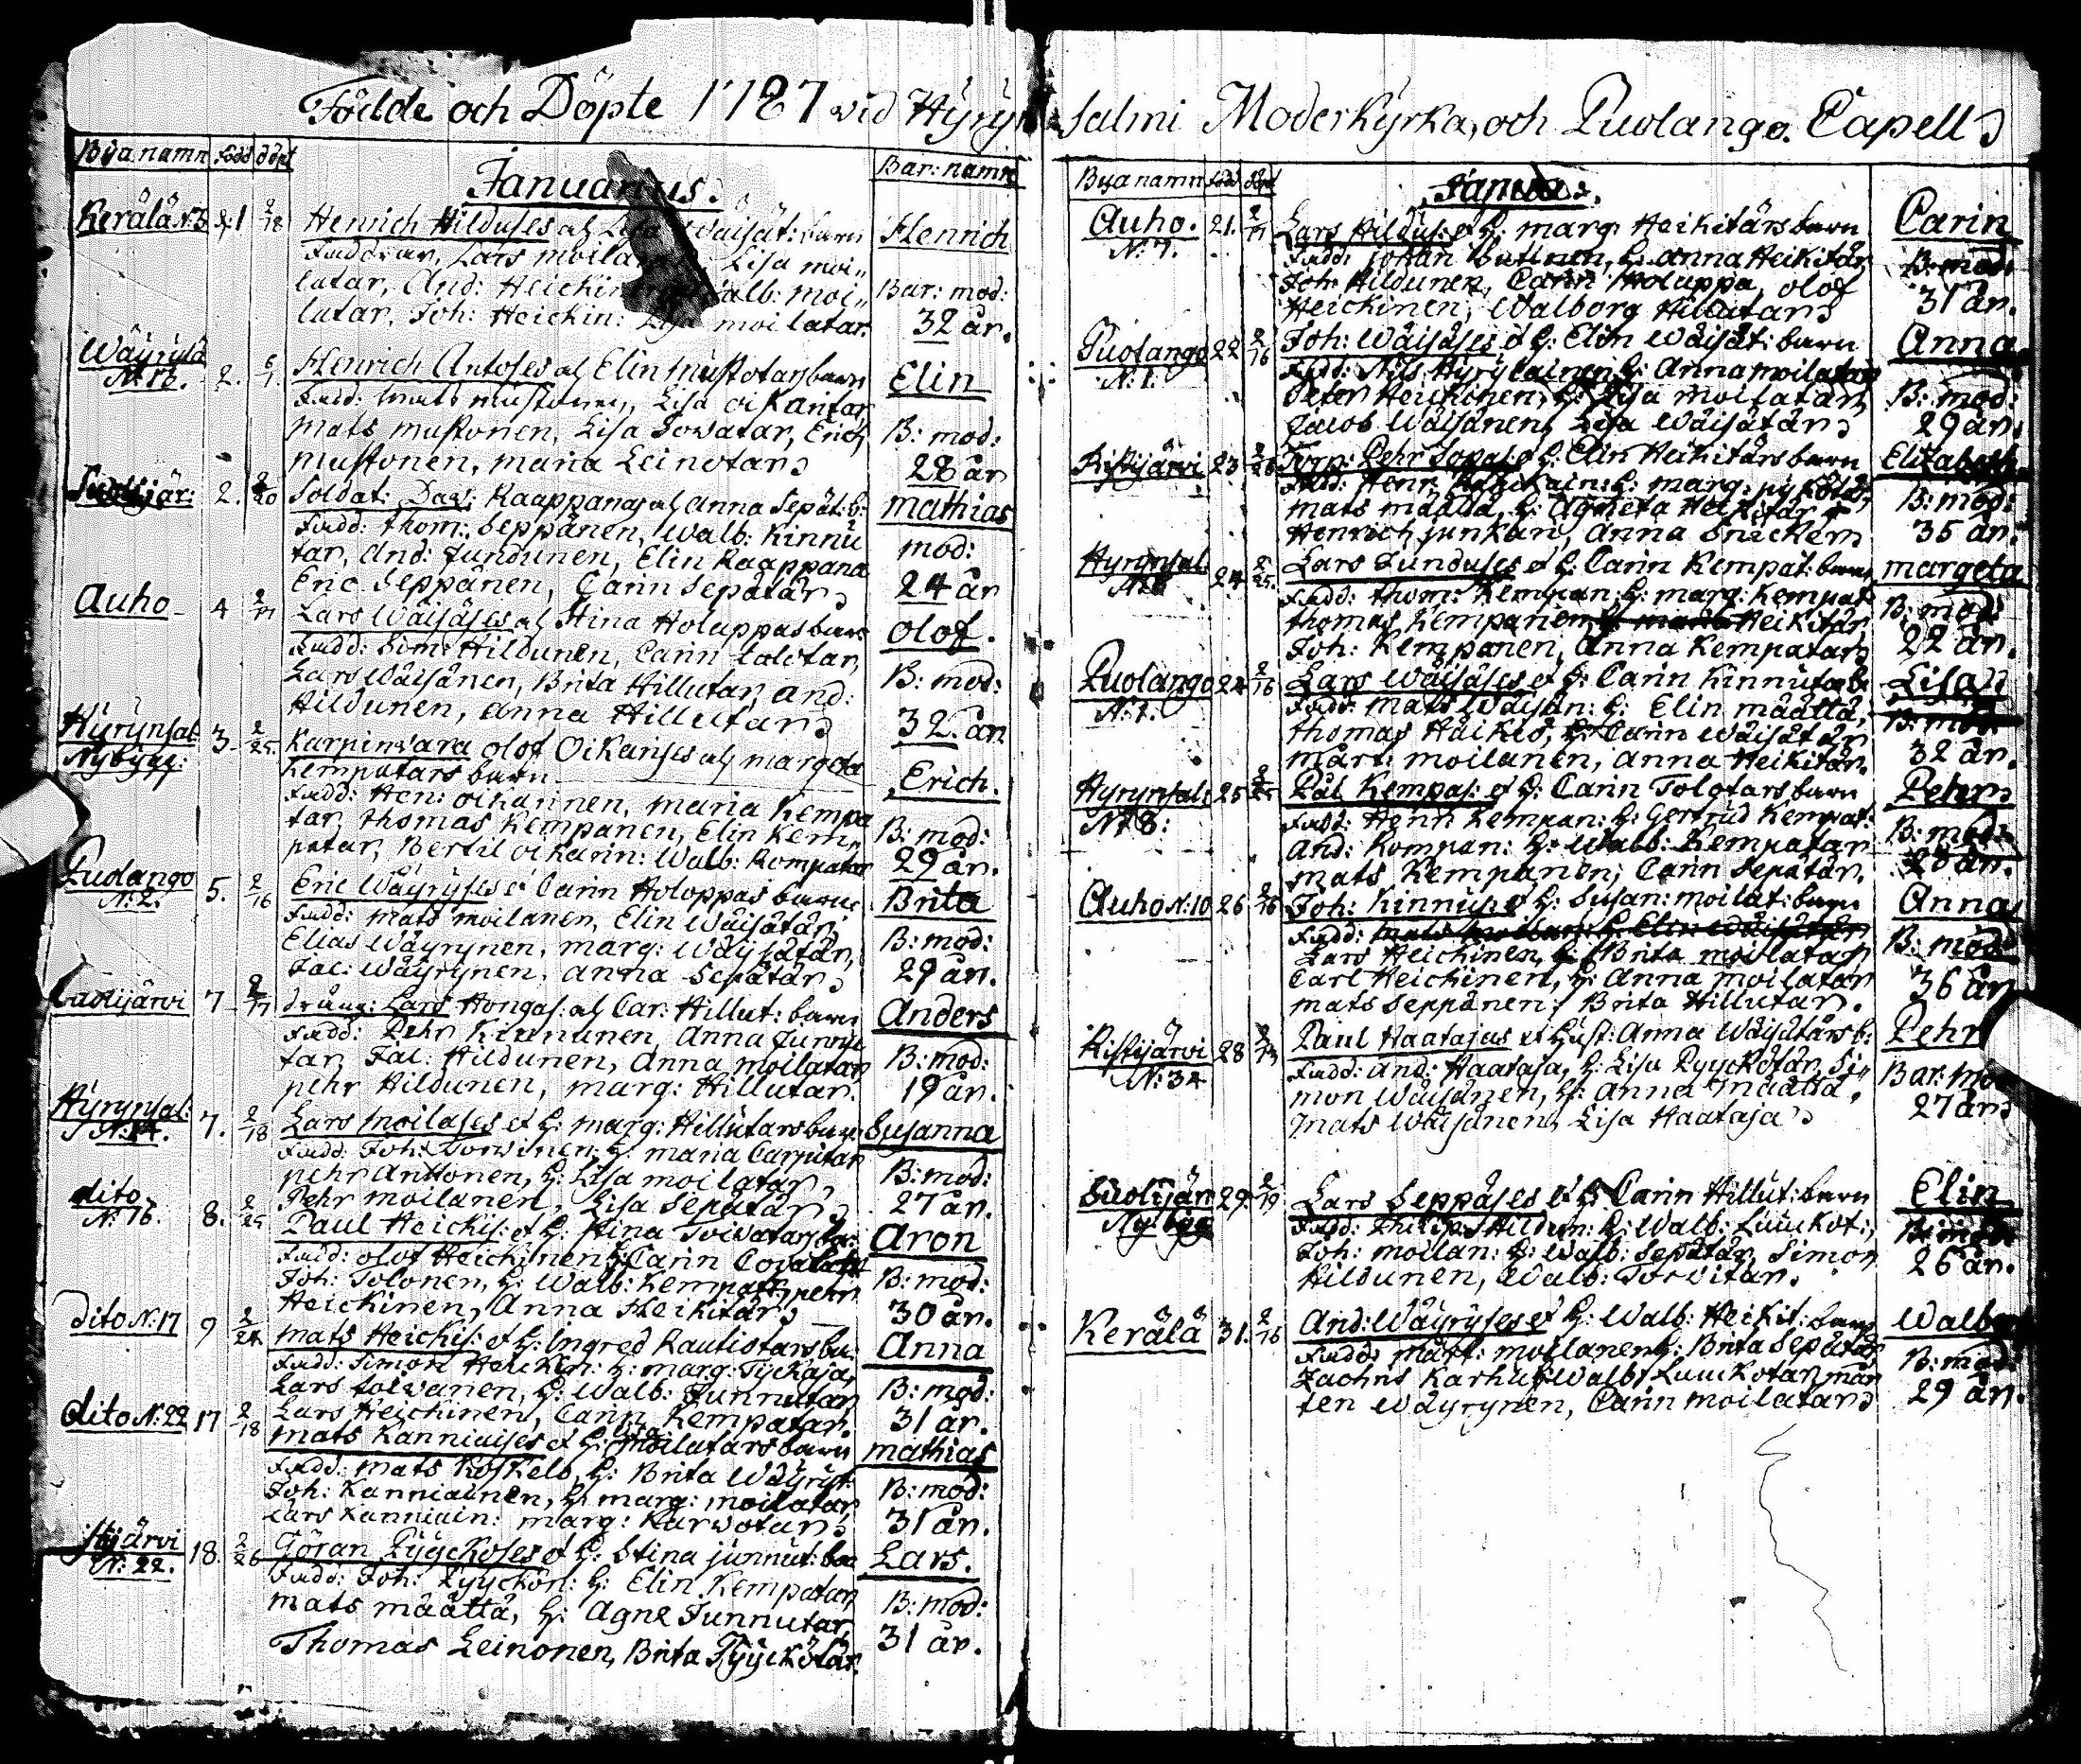 Födde och Döpte 1787 vid Hyrynsalmi Moderkyrka, och Puolango Capell
Byanamn född döpt Bar: namn
Januarius.
Kerälä N.3 1 2/18 Henrich Hilduses al Lisa Wäisät: barn Henrich
Faddrar, Lars moila Lisa moi
latar, And: Heickin alb: moi Bar: mod:
lutar, Joh: Heickin: Lisa moilatar. 32 år.
Wäyrylä
N:12. 2. 6/1. Henrich Antoses al Elin Mustotars barn Elin
Fadd: Mats mustonen, Lisa Oikaritar
mats mustonen, Lisa Sowatar, Erich B: mod:
mustonen, maria Leinotar 28 år
2. 2/20 Soldat: Dav: Kaappanas al Anna Sepät: b: mathias
Fadd: Thom: Seppänen, Walb: Kinnu
tar, And: Jundunen, Elin Kaappana mod:
Eric Seppänen, Carin Sepätär 24 år
Auho 4 2/11 Lars Wäisäses al Stina Holappas barn olof.
Fadd: Sim: Hildunen, Carin Lolotar,
Lars Wäisänen, Brita Hillutar, And: B: mod:
Hildunen, Anna Hillutar 32. år
Hyrynsal:
Nybygg: 3 2/25. Karpinwara olof Oikarises al margeta
Kempatars barn Erich.
Fadd: Hen: oikarinen, maria Kempa
tar, Thomas Kempanen, Elin Kem B: mod:
patar, Bertil oikarin: Walb: Kompatar 29 år.
Puolango
N:2. 5. 2/16 Eric Wäyryses et Carin Holoppas barn Brita
Fadd: mats moilanen, Elin Wäisätär
Elias Wäyrynen, marg: Wäisätär, B: mod:
Jac: Wäyrynen, anna Sepätär 29 år.
7 2/11 dräng: Lars Hongas: al Car: Hillut: barn Anders
Fadd: Pehr Kinnunen, Anna Junnu
tar, Jac: Hildunen, Anna moilatar, B: mod:
pehr Hildunen, marg: Hillutar. 19 år.
Hyrynsal:
N:14. 7. 2/18 Lars Moilases et h: marg: Hillutars barn Susanna
Fadd: Joh: Torwinen h: maria Carjutar
pehr Anttonen, h: Lisa moilatar, B: mod:
Pehr moilanen, Lisa Sepätär 27 år.
dito
N:16. 8. 2/25 Paul Heickis: et h: stina Toiwatars ba: Aron
Fadd: olof Heickinen h: Carin
Joh: Tolonen, h: Walb: Kempatr, pehr B: mod:
Heickinen, Anna Heikitär 30 år.
Dito N:17 9 2/24 mats Heickis: et h: Ingred Rautiotars ba: Anna
Fadd: Simon Heickin: h: marg: Tyckaja,
Lars toiwanen, h: Walb: Junnutar B: mod:
Lars Heickinen, Carin Kempatar. 31 år.
dito N:22 17 2/18 mats Kanniaises et h: moilatars barn mathias
Fadd: mats Koskelo, h: Brita Wäyryst:
Joh: Kanniainen, h: marg: moilatar B: mod:
Lars Kanniain: marg: Karwotar 31 år.
N:22. 18. 2/26 Göran Pyyckoses et h: Stina junnut: ba Lars.
Fadd: Joh: Pyyckön: h: Elin Kempatar
mats määttä, h: Agne Junnutar, B: mod:
Thomas Leinonen, Brita Pyyckötär 31 år.
Byanamn född döpt
Auho. 21. 2/11 Lars Hildus: et h: marg: Heikitärs barn Carin
N:7. Fadd: Johan buttnen, h: anna Heikitär B: mod:
Joh: Hildunen, Carin Holappa, olof
Heickinen, Walborg Hillutar 31 år.
Puolango 22 2/16 Joh: Wäisäses et h: Elin Wäisät: barn Anna
N:1. Fadd: Nils Hyryläinen h: Anna moilatar
Peter Heickinen, h: Lisa moilatar, B: mod:
Jacob Wäisänen, Lisa Wäisätär 29 år.
Ristijärvi 23 2/26 Torp: Pehr Sopas: et h: Elin Heikitärs barn Elisabeth
Fadd: Henr: h: marg:
mats määttä, h: Agneta Heikitär B: mod:
Henrich junkari, Anna Sneckers 35 år.
Hyrynsal: 24 2/25. Lars Junduses et h: Carin Kempat: barn margeta
Fadd: Thom: Kempan: h: marg: Kempat B: mod:
thomas Kempanen, Heikitär
Joh: Kempanen, Anna Kempatar 22 år.
Puolango 24 2/16 Lars Wäisäses et h: Carin Kinnuta b: Lisa
N:1. Fadd: mats Wäisän: h: Elin määttä, B: mod:
thomas Häikiö, h: Carin Wäisätär
märt: moilanen, Anna Heikitär. 32 år.
Hyrynsal: 25 2/25 Pål Kempas: et h: Carin Tolotars barn Pehr
N:8: Fadd: Henr Kempan: h: Gertrud Kempat: B: mod:
And: Kompan: h: Walb: Kempatar
mats Kempanen; Carin Sepätär.
Auho N:10 26 2/16 Joh: Kinnus: et h: Susan: moilat: barn Anna
Fadd:
Lars Heickinen, h: Brita moilatar B: mod:
Carl Heickinen, h: Anna moilatar
mats Seppänen; Brita Hillutar. 36 år
Ristijärvi 28 2/13 Paul Haatajas et Hust: Anna Wäisätärs b: Pehr
N:34 Fadd: And: Haataja, h: Lisa Pyyckötär, Si
mon Wäisänen, h: Anna määttä. Bar: mo
mats Wäisänen, Lisa Haataja 27 år
Suolijärv 29. 2/19 Lars Seppäses et h: Carin Hillut: barn Elin
Nybygg Fadd: Philip Hildun: h: Walb: Luuckot:, B: mod:
Joh: moilan: h: Walb: Sepätär, Simon
Hildunen, Walb: Torvitar. 26 år.
Kerälä 31. 2/16 And: Wäyryses et h: Walb: Heickit: barn Walb
Fadd: märt: moilanen h: Brita Sepätär B: mod:
Zachris Karhu h: Walb: Luuckotar, mär
ten Wäyrynen, Carin moilatar 29 år.